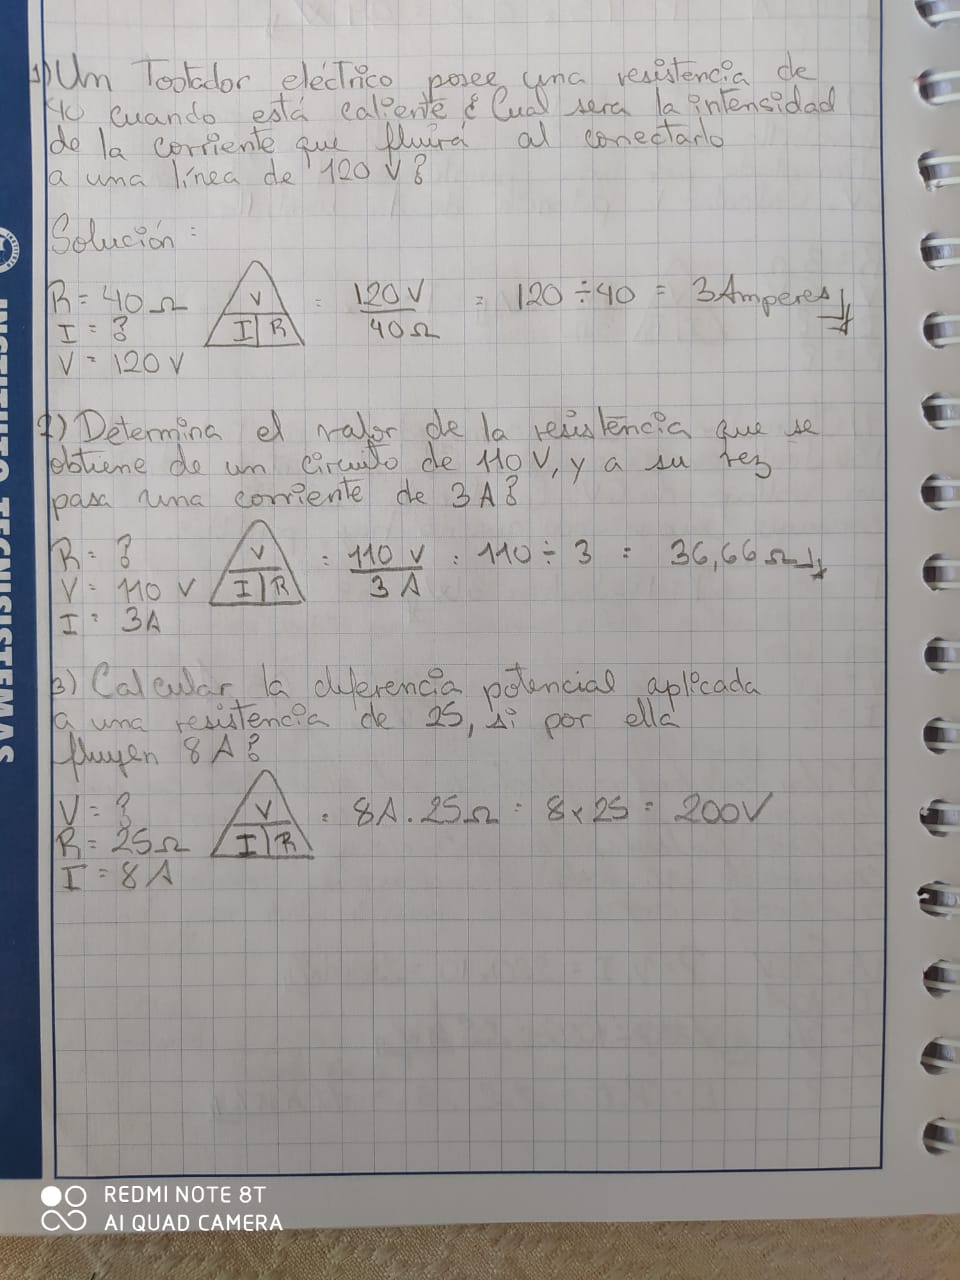 1) Un Tostador eléctrico posee una resistencia de
40 cuando está caliente ¿ Cual sera la intensidad
de la corriente que fluirá al conectarlo
a una línea de 120 V?
Solución:
R = 40 Ω
I = ?
V = 120 V
V
I | R
= 120 V / 40 Ω = 120 ÷ 40 = 3 Amperes
2) Determina el valor de la resistencia que se
obtiene de un circuito de 110 V, y a su vez
pasa una corriente de 3 A?
R = ?
V = 110 V
I = 3A
V
I | R
= 110 V / 3 A = 110 ÷ 3 = 36,66 Ω
3) Calcular la diferencia potencial aplicada
a una resistencia de 25, si por ella
fluyen 8 A?
V = ?
R = 25 Ω
I = 8 A
V
I | R
= 8A . 25 Ω = 8 x 25 = 200V
INSTITUTO TECNISISTEMAS
REDMI NOTE 8T
AI QUAD CAMERA